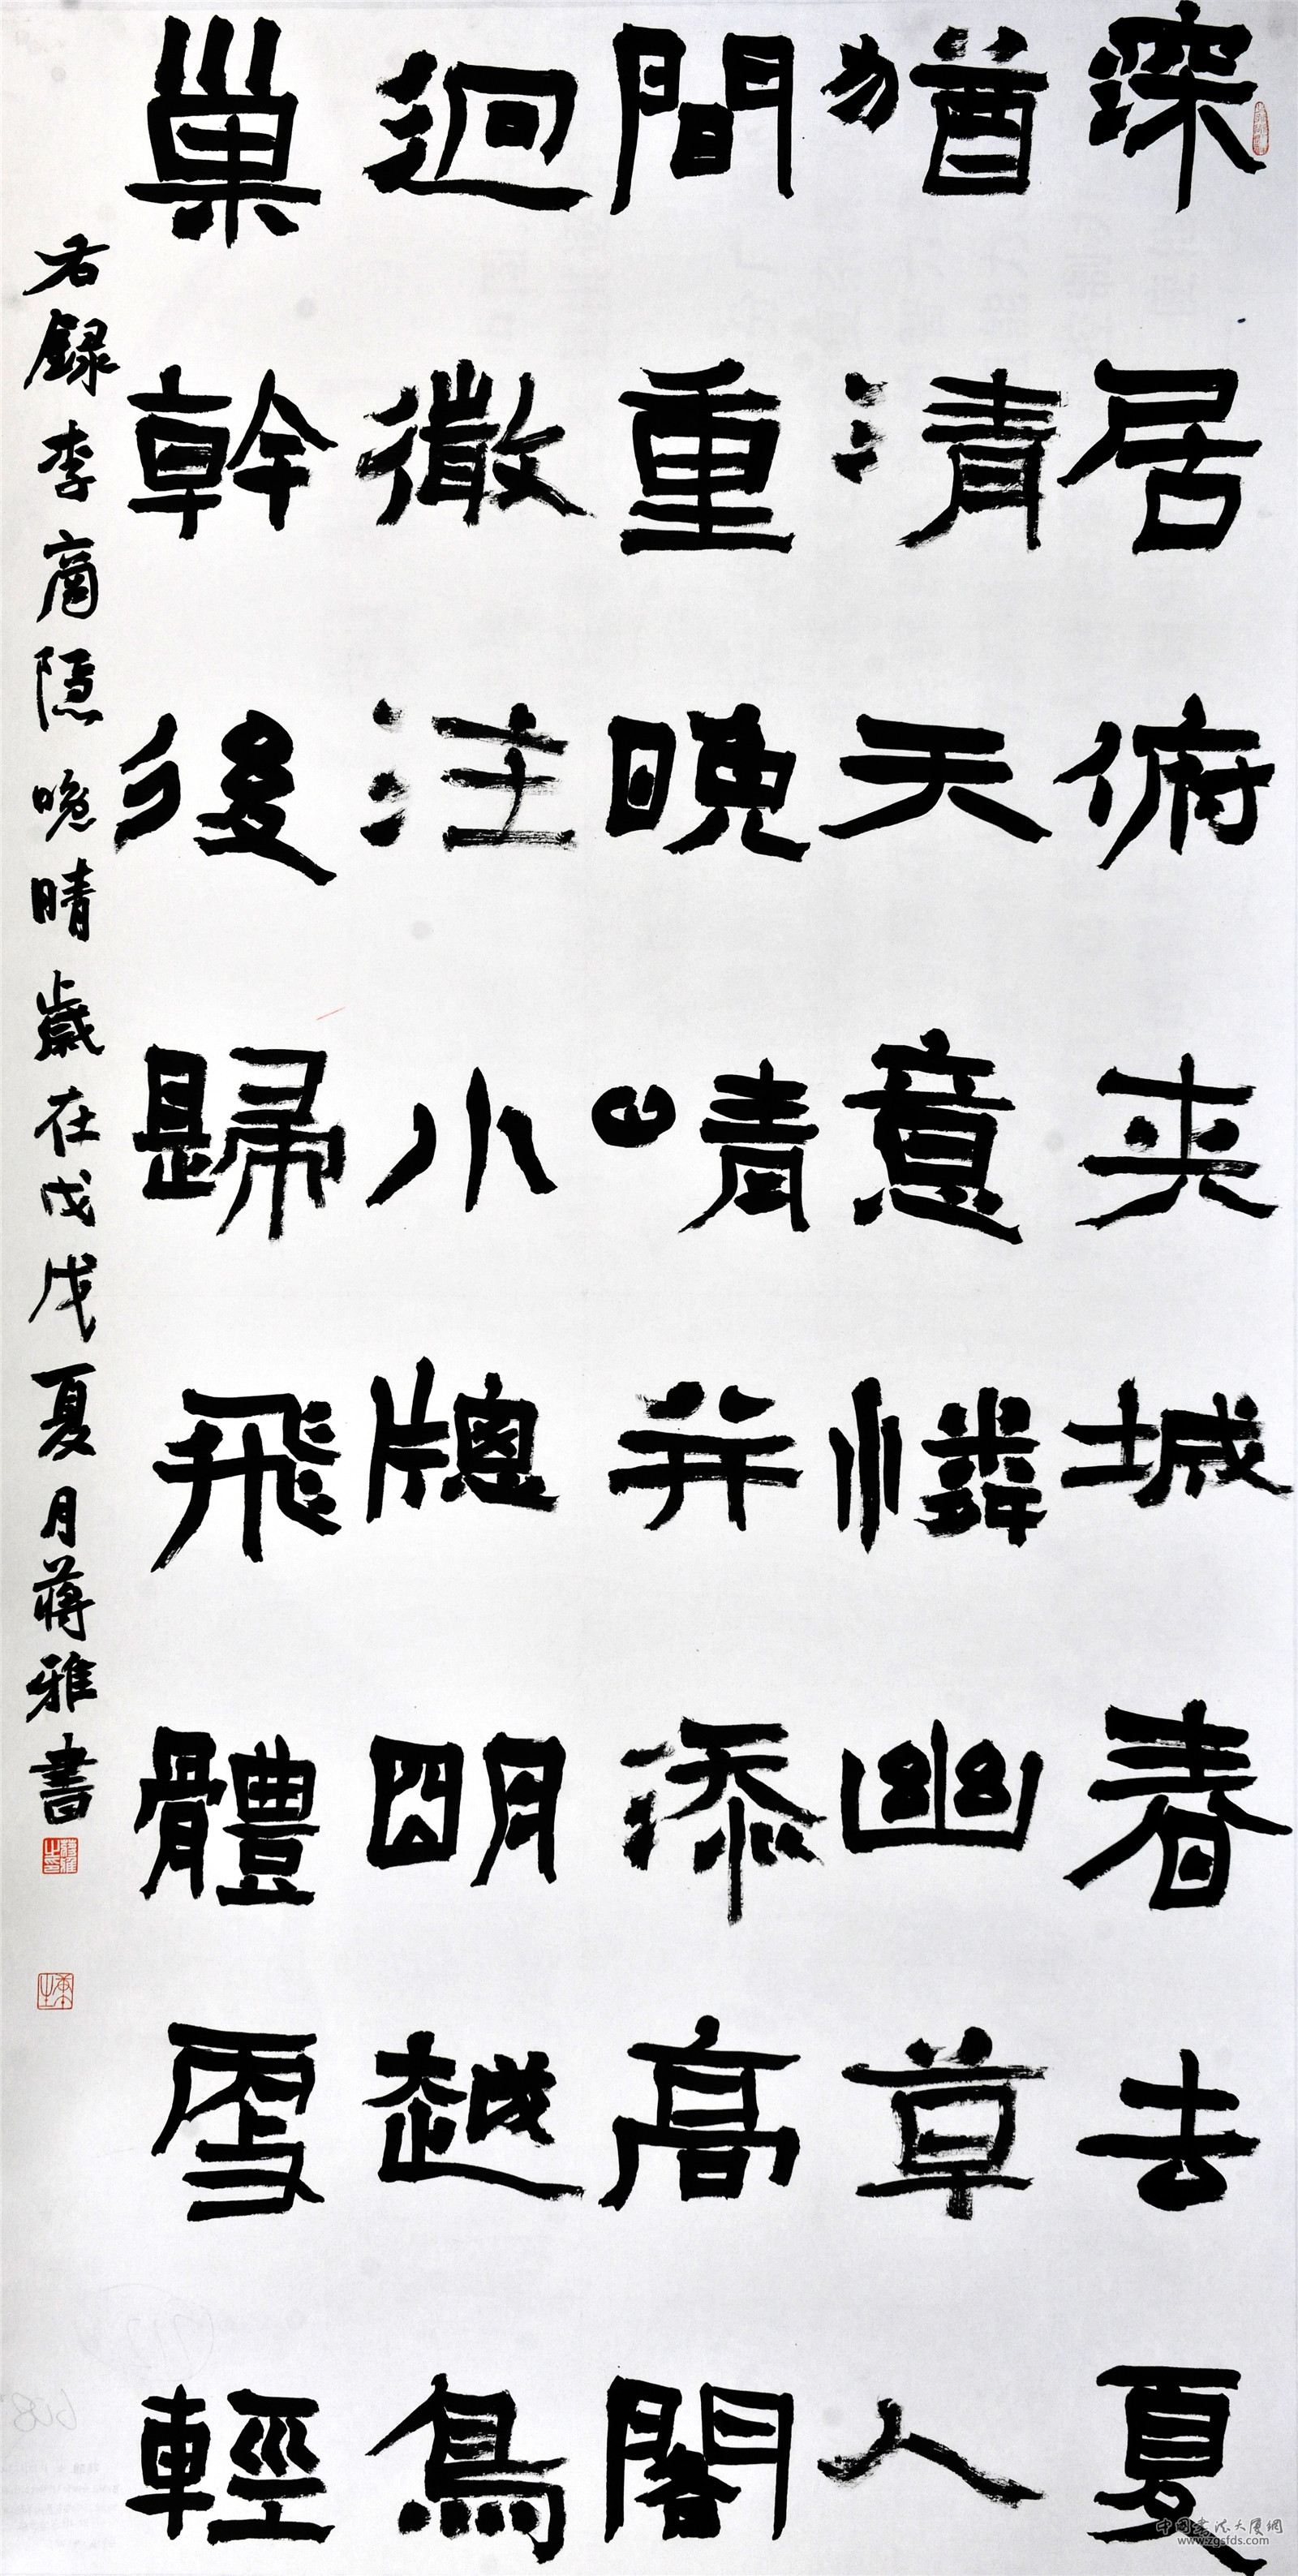 深居俯夾城春去夏
猶清天意憐幽草人
間重晚晴并添高閣
迴微注小牕明越鳥
巢幹後歸飛體雪輕
右録李商隱晚晴歲在戊戌夏月蔣雅書
中國書法大廈網
www.zgsfds.com